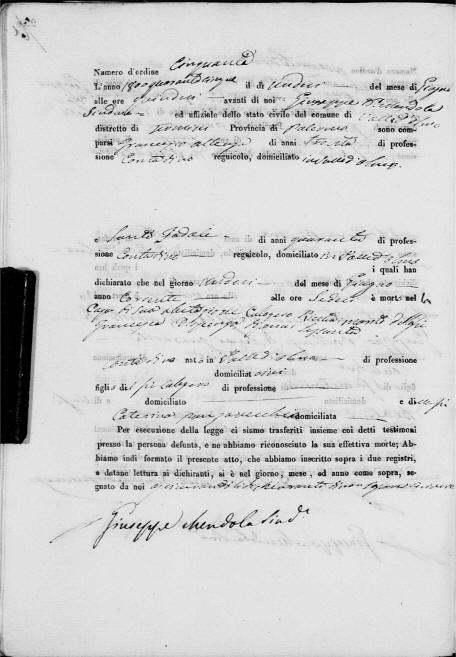 Numero d'ordine Cinquanta
L'anno 1800quarantacinque il dì undici del mese di Giugno
alle ore avanti di noi Giuseppe Mendola
Sindaco ed uffiziale dello stato civile del comune di Valledolmo
distretto di Termini Provincia di Palermo sono com-
parsi Francesco di anni trenta di profes-
sione Contadino regnicolo, domiciliato in Valledolmo
e Santo di anni quaranta di profes-
sione Contadino regnicolo, domiciliato in Valledolmo
i quali han
dichiarato che nel giorno undici del mese di Giugno
anno Corrente alle ore Sedeci è morto nella
Casa di sua abitazione Calogero marito di
Francesca di anni sessanta
Contadino nato in Valledolmo di professione
domiciliato ivi
figlio del fu Calogero di professione
domiciliato e di
Caterina domiciliata
Per esecuzione della legge ci siamo trasferiti insieme coi detti testimoni
presso la persona defunta, e ne abbiamo riconosciuto la sua effettiva morte; Ab-
biamo indi formato il presente atto, che abbiamo inscritto sopra i due registri,
e datane lettura ai dichiranti, si è nel giorno, mese, ed anno come sopra, se-
gnato da noi
Giuseppe Mendola Sind°